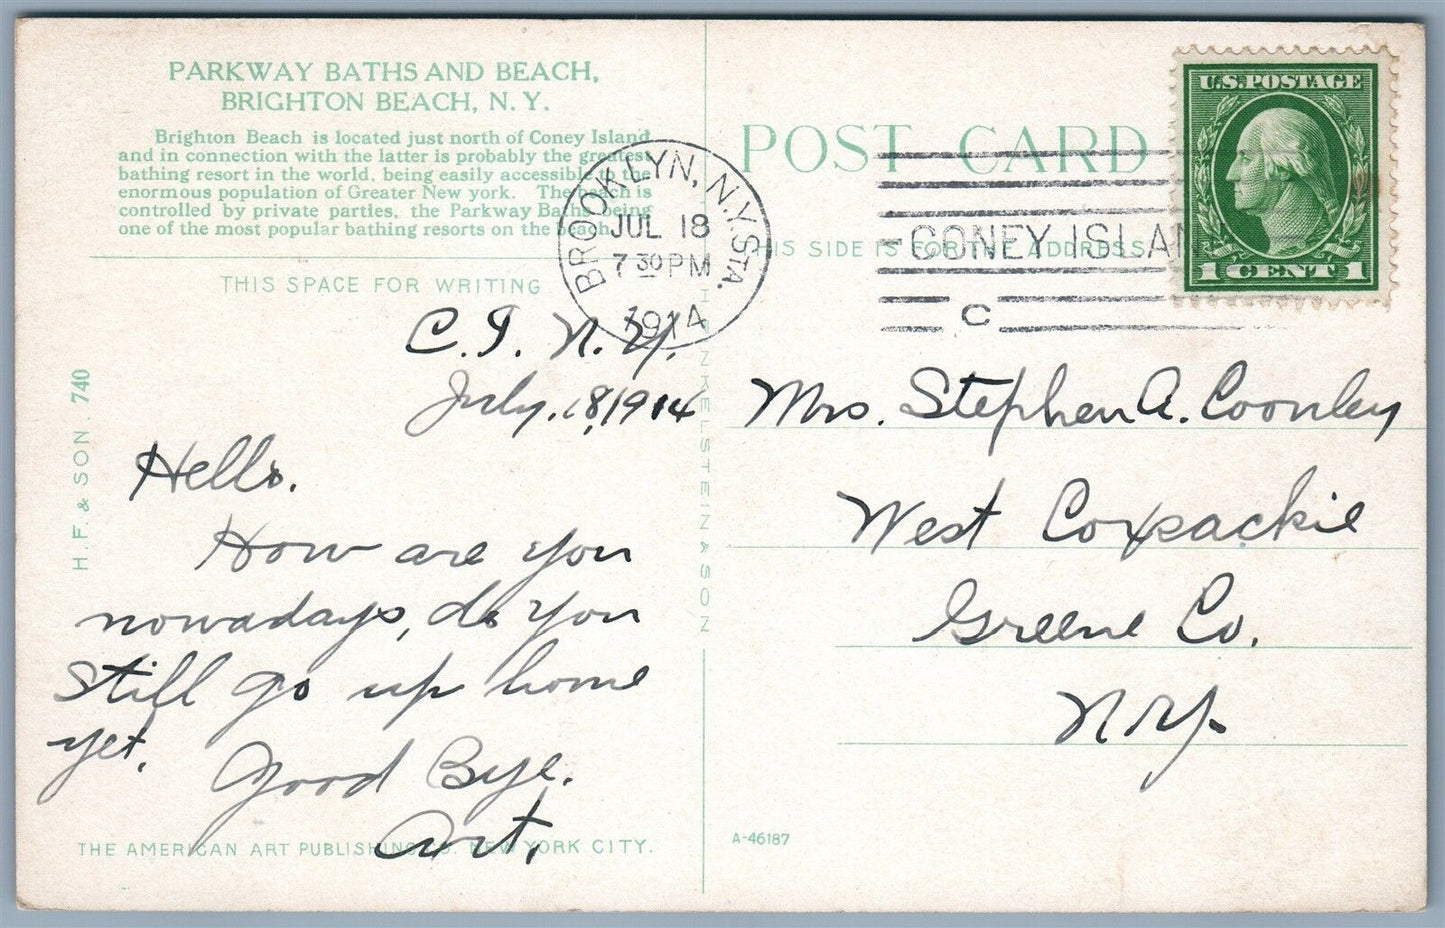 PARKWAY BATHS AND BEACH,
BRIGHTON BEACH, N. Y.
Brighton Beach is located just north of Coney Island
and in connection with the latter is probably the greatest
bathing resort in the world, being easily accessible to the
enormous population of Greater New york. The beach is
controlled by private parties, the Parkway Baths being
one of the most popular bathing resorts on the beach.
THIS SPACE FOR WRITING
C. I. N. Y.
July, 18, 1914
Hello.
How are you
nowadays, do you
still go up home
yet.
Good Bye.
Art.
THE AMERICAN ART PUBLISHING CO. NEW YORK CITY.
H. F. & SON. 740
FINKELSTEIN & SON
BROOKLYN, N.Y. STA.
JUL 18
7 30 PM
1914
CONEY ISLAN
C
POST CARD
THIS SIDE IS FOR THE ADDRESS
U.S. POSTAGE
1 CENT 1
Mrs. Stephen A. Coonley
West Coxsackie
Greene Co.
N.Y.
A-46187